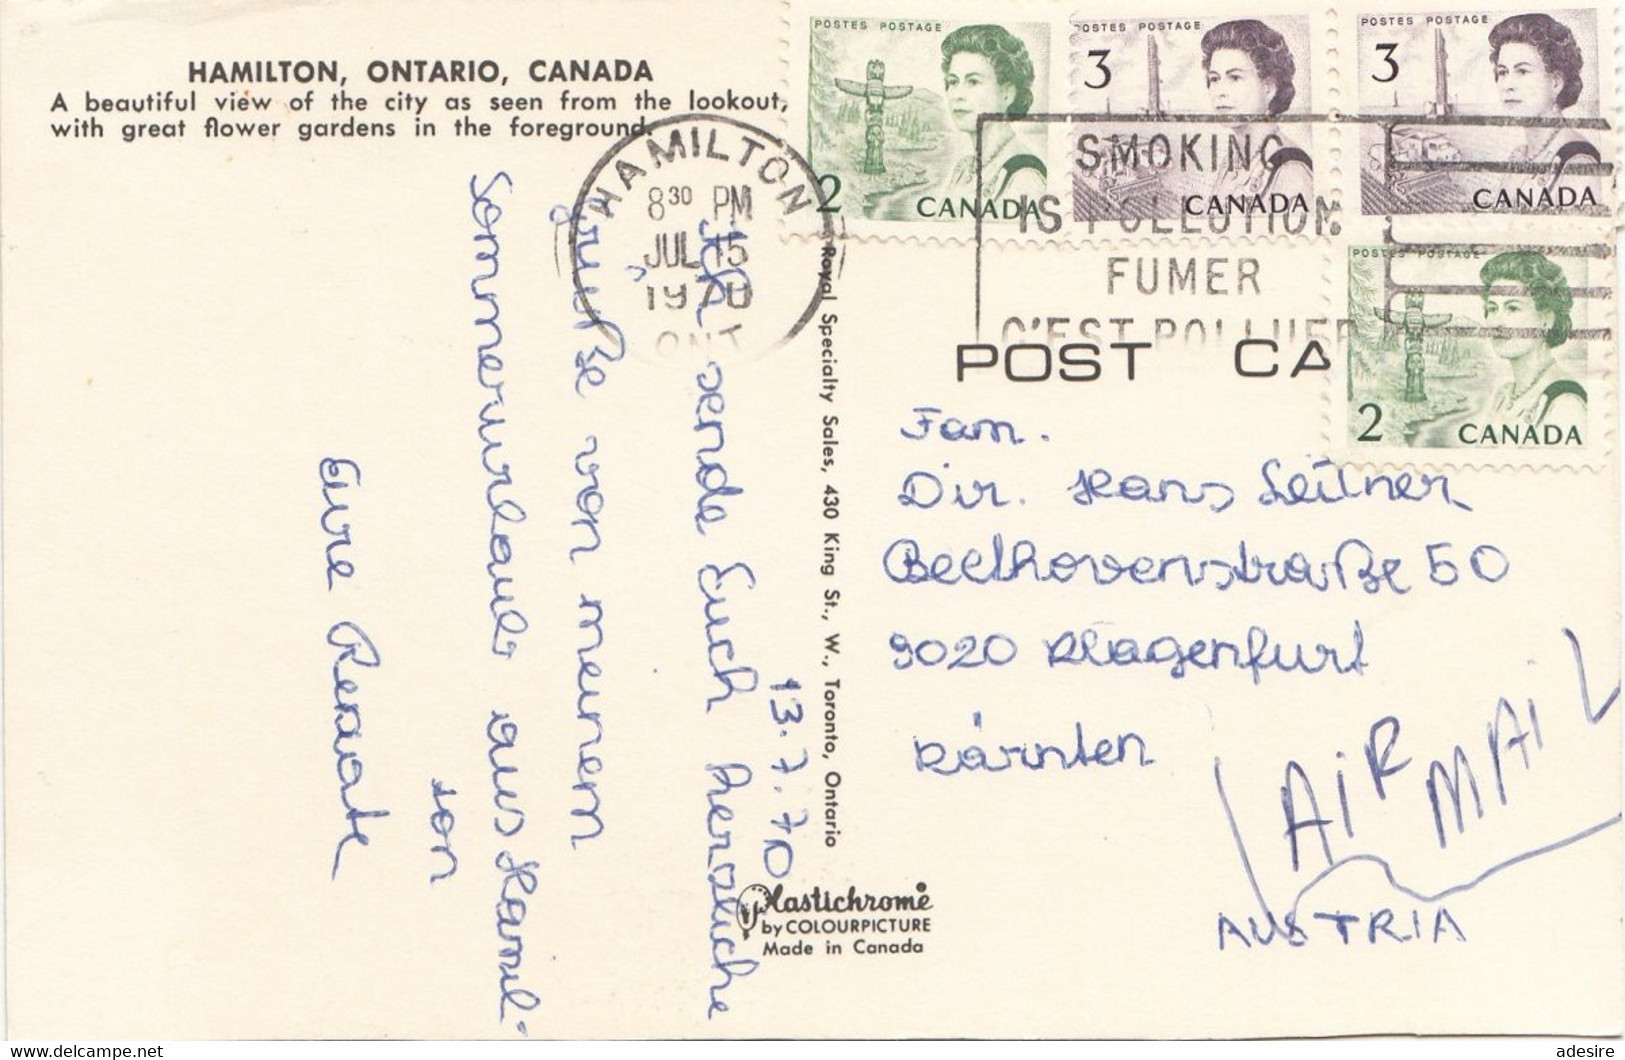 HAMILTON, ONTARIO, CANADA
A beautiful view of the city as seen from the lookout,
with great flower gardens in the foreground.
HAMILTON
8 30 PM
JUL 15
1970
ONT
SMOKING
IS POLLUTION
FUMER
C'EST POLLUER
POSTES POSTAGE
2 CANADA
POSTES POSTAGE
3
CANADA
POSTES POSTAGE
3
CANADA
POSTES POSTAGE
2 CANADA
POST CA
13.7.70
Ich sende Euch herzliche
Grüße von meinem
Sommerurlaub aus Hamil-
ton
Eure Renate
Royal Specialty Sales, 430 King St., W., Toronto, Ontario
Plastichrome
by COLOURPICTURE
Made in Canada
Fam.
Dir. Hans Leitner
Beethovenstraße 50
9020 Klagenfurt
Kärnten
AIR MAIL
AUSTRIA
adesire